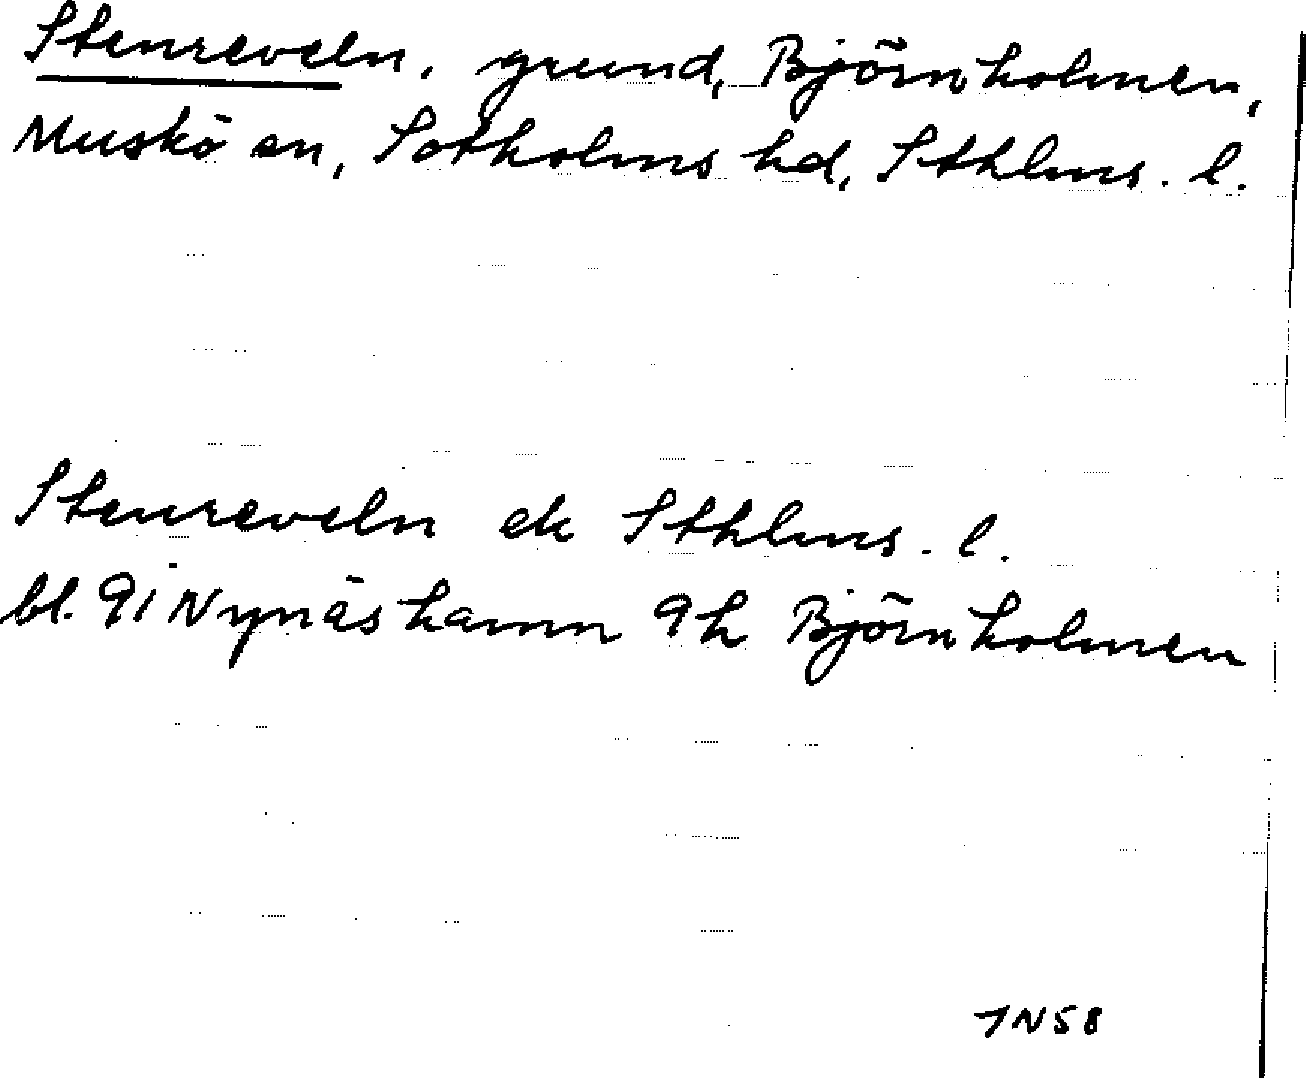 Stenreveln, grund, Björnholmen,
Muskö sn, Sotholms hd, Sthlms. l.
Stenreveln ek Sthlms. l.
bl. 9i Nynäshamn 9h Björnholmen
7N58